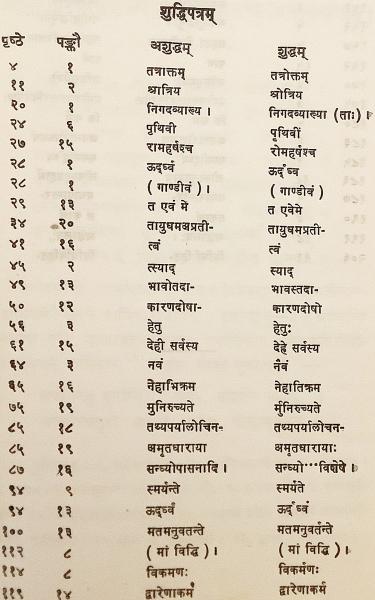 शुद्धिपत्रम्
पृष्ठे पङ्क्तौ अशुद्धम् शुद्धम्
४ १ तत्राक्तम् तत्रोक्तम्
११ २ श्रात्रिय श्रोत्रिय
२० १ निगदव्यास्य । निगदव्याख्या (ताः) ।
२४ ६ पृथिवी पृथिवीं
२७ १५ रामहर्षश्च रोमहर्षश्च
२८ १ ऊदर्ध्वं ऊर्द्ध्वं
२८ १ ( गाण्डीवं ) । ( गाण्डीवं )
२९ १३ त एवं मे त एवेमे
३४ २० तायुधमअप्रती- तायुधमप्रती-
४१ १६ त्बं त्वं
४५ २ त्स्याद् स्याद्
४९ १३ भावोतदा- भावस्तदा-
५० १२ कारणदोषा- कारणदोषो
५६ ३ हेतु हेतुः
६१ १५ देही सर्वस्य देहे सर्वस्य
६४ ३ नवं नैवं
६५ १६ नेहाभिक्रम नेहातिक्रम
७५ १९ मुनिरुच्यते र्मुनिरुच्यते
८५ १८ तथ्यपर्यालोचिन- तथ्यपर्यालोचन-
८५ १९ अमृतधाराया अमृतधारायाः
८७ १६ सन्ध्योपासनादि । सन्ध्यो···विशेषे ।
९४ ९ स्मर्यन्ते स्मर्यते
९४ १३ ऊदर्ध्वं ऊर्द्ध्वं
१०० १३ मतमनुवतन्ते मतमनुवर्तन्ते
११२ ८ ( मां विद्धि ) । ( मां विद्धि ) ।
११४ ८ विकमणः विकर्मणः
११९ १४ द्वारेणाकर्मं द्वारेणाकर्म